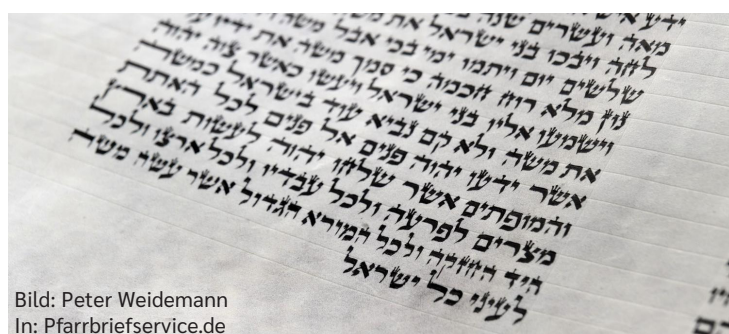 ידע איש
מאה ועשרים שנה
לחה ויבכו בני ישראל את
שלשים יום ויתמו ימי בכי אבל משה
נון מלא רוח חכמה כי סמך משה את ידיו
וישמעו אליו בני ישראל ויעשו כאשר צוה יהוה
את משה ולא קם נביא עוד בישראל כמשה
אשר ידעו יהוה פנים אל פנים לכל האתת
והמופתים אשר שלחו יהוה לעשות בארץ
מצרים לפרעה ולכל עבדיו ולכל ארצו ולכל
היד החזקה ולכל המורא הגדול אשר עשה משה
לעיני כל ישראל
Bild: Peter Weidemann
In: Pfarrbriefservice.de